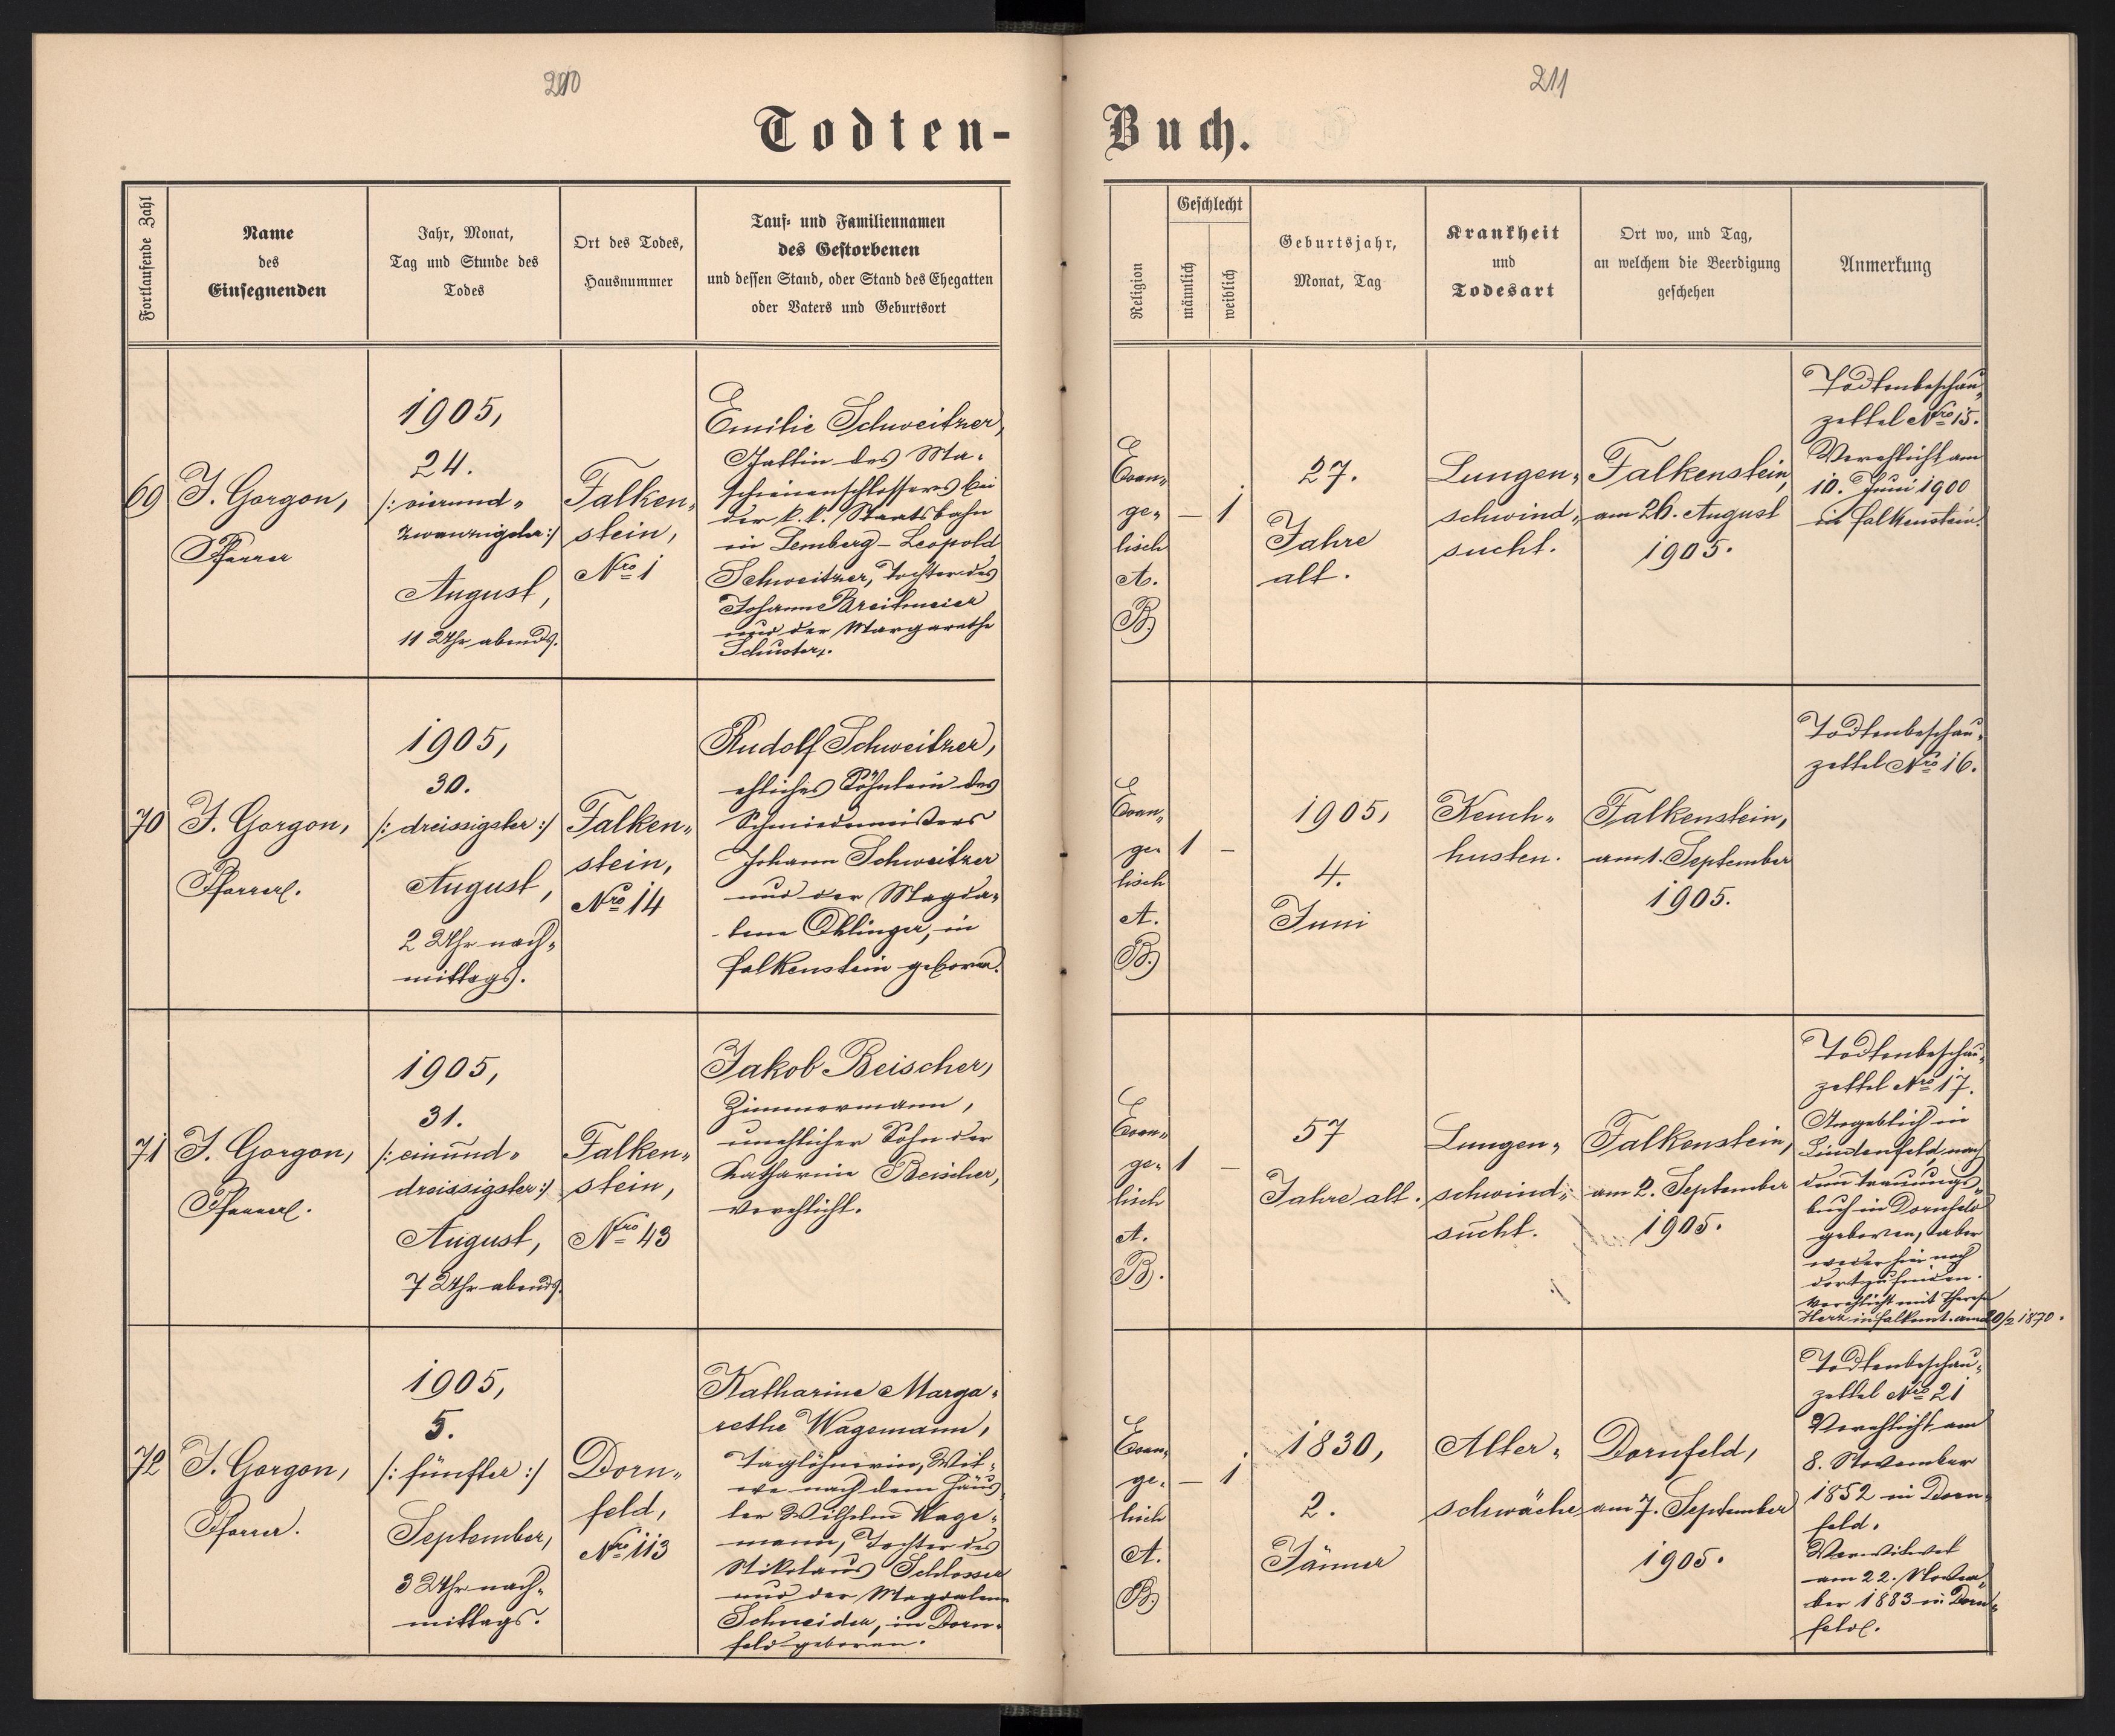 210
211
Todten-
Buch.
Fortlaufende Zahl
Name
des
Einsegnenden
Jahr, Monat,
Tag und Stunde des
Todes
Ort des Todes,
Hausnummer
Tauf- und Familiennamen
des Gestorbenen
und dessen Stand, oder Stand des Ehegatten
oder Vaters und Geburtsort
Religion
Geschlecht
männlich
weiblich
Geburtsjahr,
Monat, Tag
Krankheit
und
Todesart
Ort wo, und Tag,
an welchem die Beerdigung
geschehen
Anmerkung
69
J. Gorgon,
Pfarrer
1905,
24.
/: vierund„
zwanzigster :/
August,
11 Uhr abends.
Falken„
stein,
Nro 1
Emilie Schweitzer,
Gattin des Ma„
schienenschlossers bei
der k. k. Staatsbahn
in Lemberg - Leopold
Schweitzer, Tochter des
Johann Breitmeier
und der Margarethe
Schuster.
Evan„
ge„
lisch
A.
B.
— 1
27.
Jahre
alt.
Lungen„
schwind„
sucht.
Falkenstein,
am 26. August
1905.
Todtenbeschau„
zettel Nro 15.
Verehlicht am
10. Juni 1900
in Falkenstein.
70
J. Gorgon,
Pfarrer.
1905,
30.
/: dreissigster :/
August,
2 Uhr nach„
mittags.
Falken„
stein,
Nro 14
Rudolf Schweitzer,
ehliches Söhnlein des
Schmiedmeisters
Johann Schweitzer
und der Magda„
lena Ohlinger, in
Falkenstein geboren.
Evan„
ge„
lisch
A.
B.
1 —
1905,
4.
Juni
Keuch„
husten.
Falkenstein,
am 1. September
1905.
Todtenbeschau„
zettel Nro 16.
71
J. Gorgon,
Pfarrer.
1905,
31.
/: einund„
dreissigster :/
August,
7 Uhr abends.
Falken„
stein,
Nro 43
Jakob Beischer,
Zimmermann,
unehlicher Sohn der
Katharine Beischer,
verehlicht.
Evan„
ge„
lisch
A.
B.
1 —
57
Jahre alt.
Lungen„
schwind„
sucht.
Falkenstein,
am 2. September
1905.
Todtenbeschau„
zettel Nro 17.
Angeblich in
Lindenfeld, nach
dem Trauungs„
buch in Dornfeld
geboren, aber
weder hier noch
dort zu finden.
Verehlicht mit Therese
Herz in Falkenst. am 20/2 1870.
72
J. Gorgon,
Pfarrer.
1905,
5.
/: fünfter :/
September,
3 Uhr nach„
mittags.
Dorn„
feld,
Nro 113
Katharine Marga„
rethe Wagemann,
Taglöhnerin, Wit„
we nach dem Häus„
ler Wilhelm Wage„
mann, Tochter des
Nikolaus Schlosser
und der Magdalena
Schneider, in Dorn„
feld geboren.
Evan„
ge„
lisch
A.
B.
— 1
1830,
2.
Jänner
Alter„
schwäche
Dornfeld,
am 7. September
1905.
Todtenbeschau„
zettel Nro 21
Verehlicht am
8. November
1852 in Dorn„
feld.
Verwitwet
am 22. Novem„
ber 1883 in Dorn„
feld.